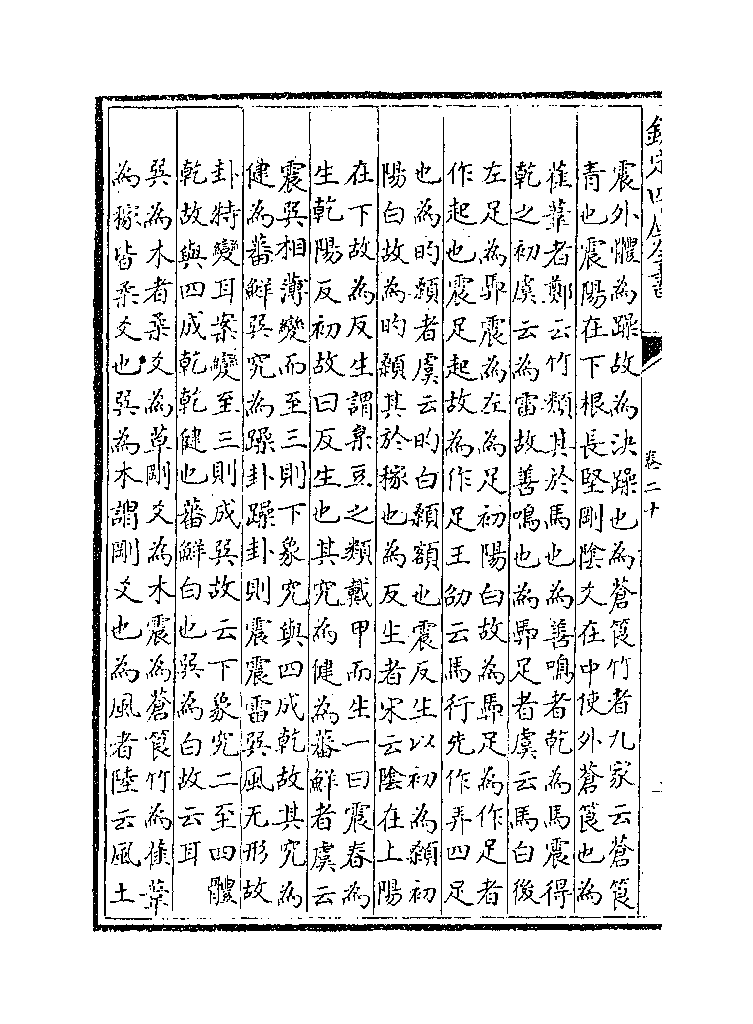 欽定四庫全書
卷二十
震外體為躁故為決躁也為蒼筤竹者九家云蒼筤
青也震陽在下根長堅剛陰爻在中使外蒼筤也為
萑葦者鄭云竹類其於馬也為善鳴者乾為馬震得
乾之初虞云為雷故善鳴也為馵足者虞云馬白後
左足為馵震為左為足初陽白故為馵足為作足者
作起也震足起故為作足王劭云馬行先作弄四足
也為的顙者虞云的白顙額也震反生以初為顙初
陽白故為的顙其於稼也為反生者宋云陰在上陽
在下故為反生謂枲豆之類戴甲而生一曰震春為
生乾陽反初故曰反生也其究為健為蕃鮮者虞云
震巽相薄變而至三則下象究與四成乾故其究為
健為蕃鮮巽究為躁卦躁卦則震震雷巽風无形故
卦特變耳案變至三則成巽故云下象究二至四體
乾故與四成乾乾健也蕃鮮白也巽為白故云耳
巽為木者柔爻為草剛爻為木震為蒼筤竹為萑葦
為稼皆柔爻也巽為木謂剛爻也為風者陸云風土